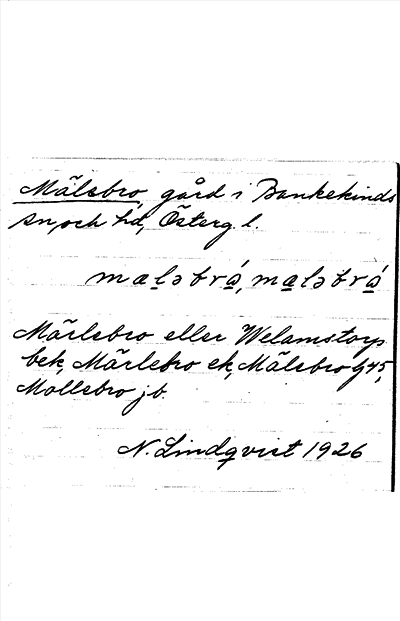 Mälsbro, gård i Bankekinds
sn, och hd, Österg. l.
mælǝbrá, mælǝbrá
Märlebro eller Welamstorp
bek, Märlebro ek, Mälebro G45,
Mollebro jb.
N. Lindqvist 1926